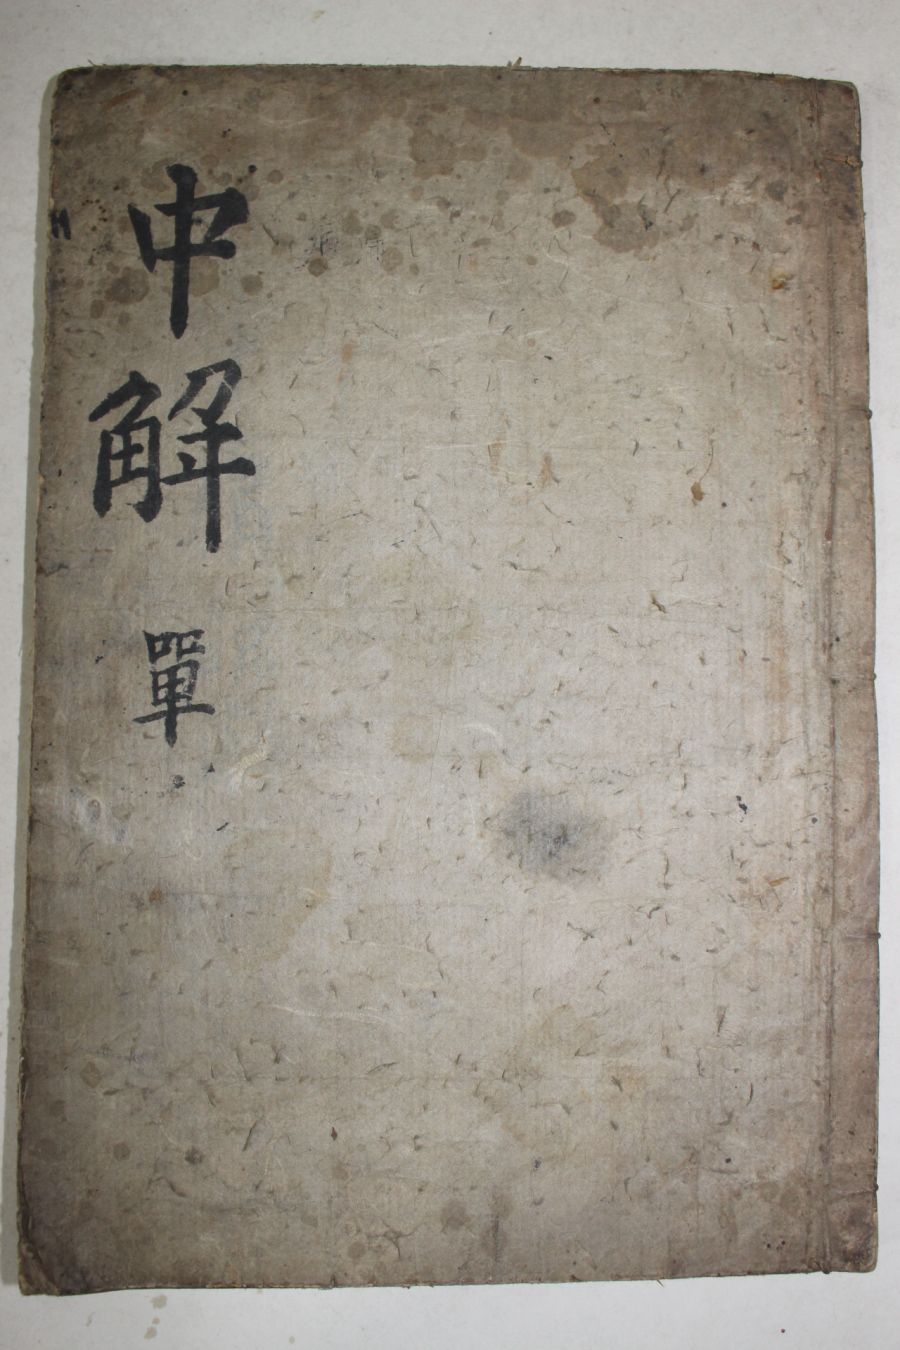 中解單